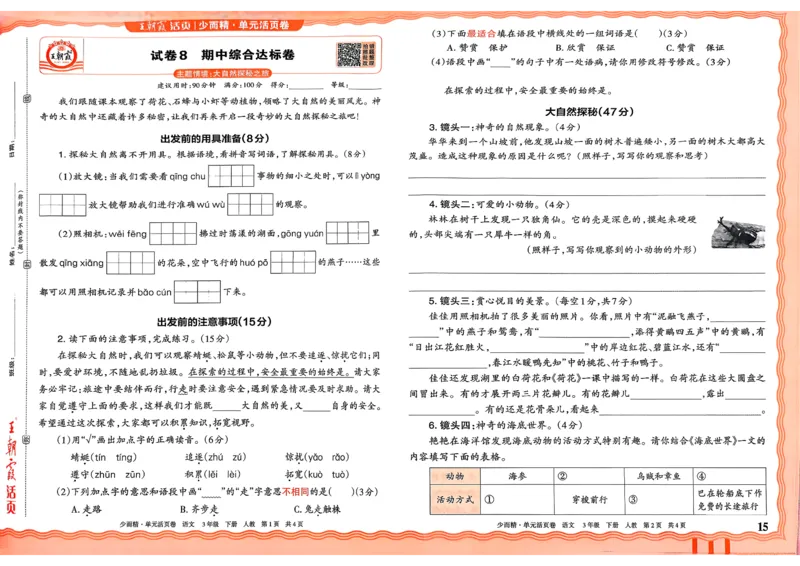 王朝霞 活页 少而精·单元活页卷
试卷8 期中综合达标卷
主题情境:大自然探秘之旅
建议用时:90分钟 满分:100分 得分: 等级:
我们跟随课本观察了荷花、石蜂与小虾等动植物,领略了大自然的美丽风光。神
奇的大自然中还藏着许多秘密,让我们再来开启一段奇妙的大自然探秘之旅吧!
出发前的用具准备(8分)
1. 探秘大自然离不开用具。根据语境,看拼音写词语,了解探秘用具。(8分)
(1)放大镜:当我们需要看qīng chu 事物的细小之处时,可以lì yòng
放大镜帮助我们进行准确wú wù 的观察。
(2)照相机:wēi fēng 拂过时荡漾的湖面,gōng yuán 里
散发qīng xiāng 的花朵,空中飞行的huó pō 的燕子……这些
都可以用照相机记录并bǎo cún 下来。
出发前的注意事项(15分)
2. 读下面的注意事项,完成练习。(15分)
在探秘大自然时,我们可以观察蜻蜓、松鼠等小动物,但不要追逐、惊扰它们;同
时,要爱护环境,不随地乱扔垃圾。在探索的过程中,安全最重要的始终是。请大家
务必牢记:旅途中要结伴而行,行走时要注意安全,遇到紧急情况要及时求助。请大
家自觉遵守上面的要求,这样我们才能既____大自然的美,又____自身的安全。
希望通过这次探索,大家都可以积累知识,拓宽视野。
(1)用“√”画出加点字的正确读音。(6分)
蜻蜓(tín tíng) 追逐(zhú zú) 惊扰(yǎo rǎo)
遵守(zhūn zūn) 积累(lěi lèi) 拓宽(kuò tuò)
(2)下列加点字的意思和语段中画“____”的“走”字意思不相同的是( )(3分)
A. 走路 B. 齐步走 C. 兔走触株
少而精·单元活页卷 语文 3年级 下册 人教 第1页 共4页
(3)下面最适合填在语段中横线处的一组词语是( )(3分)
A. 赞赏 保护 B. 欣赏 保证 C. 赞赏 保证
(4)语段中画“____”的句子中有一处语病,请你用修改符号修改。(3分)
在探索的过程中,安全最重要的始终是。
大自然探秘(47分)
3. 镜头一:神奇的自然现象。(4分)
华华来到一个山坡前,他发现山坡一面的树木普遍矮小,另一面的树木大都高大
茂盛。造成这种现象的原因是什么呢?(照样子,写写你的观察和思考)
4. 镜头二:可爱的小动物。(4分)
林林在树干上发现一只独角仙。它的壳是深色的,摸起来硬硬
的,头部尖端有一只犀牛一样的角。
(照样子,写写你观察到的小动物的外形)
5. 镜头三:赏心悦目的美景。(每空1分,共7分)
佳佳用照相机拍了很多美丽的照片。你看,照片中有“泥融飞燕子,
____”中的燕子和鸳鸯,有“____,添得黄鹂四五声”中的黄鹂,有
“日出江花红胜火,____”中的岸边红花、碧蓝江水,还有“____
____,春江水暖鸭先知”中的桃花、竹子和鸭子。
佳佳还发现湖里的白荷花和《荷花》一课中描写的一样。白荷花在这些大圆盘之
间冒出来。有的才展开两三片花瓣儿。有的花瓣儿____,露出____
____。有的还是花骨朵儿,看起来____。
6. 镜头四:神奇的海底世界。(4分)
艳艳在海洋馆发现海底动物的活动方式特别有趣。请你结合《海底世界》一文的
内容填写下面的表格。
动物 海参 ② 乌贼和章鱼 ④
活动方式 ① 穿梭前行 ③ 巴在轮船底下作免费的长途旅行
少而精·单元活页卷 语文 3年级 下册 人教 第2页 共4页
15
班级:
姓名:
(弥封线内不要答题)
王朝霞 活页